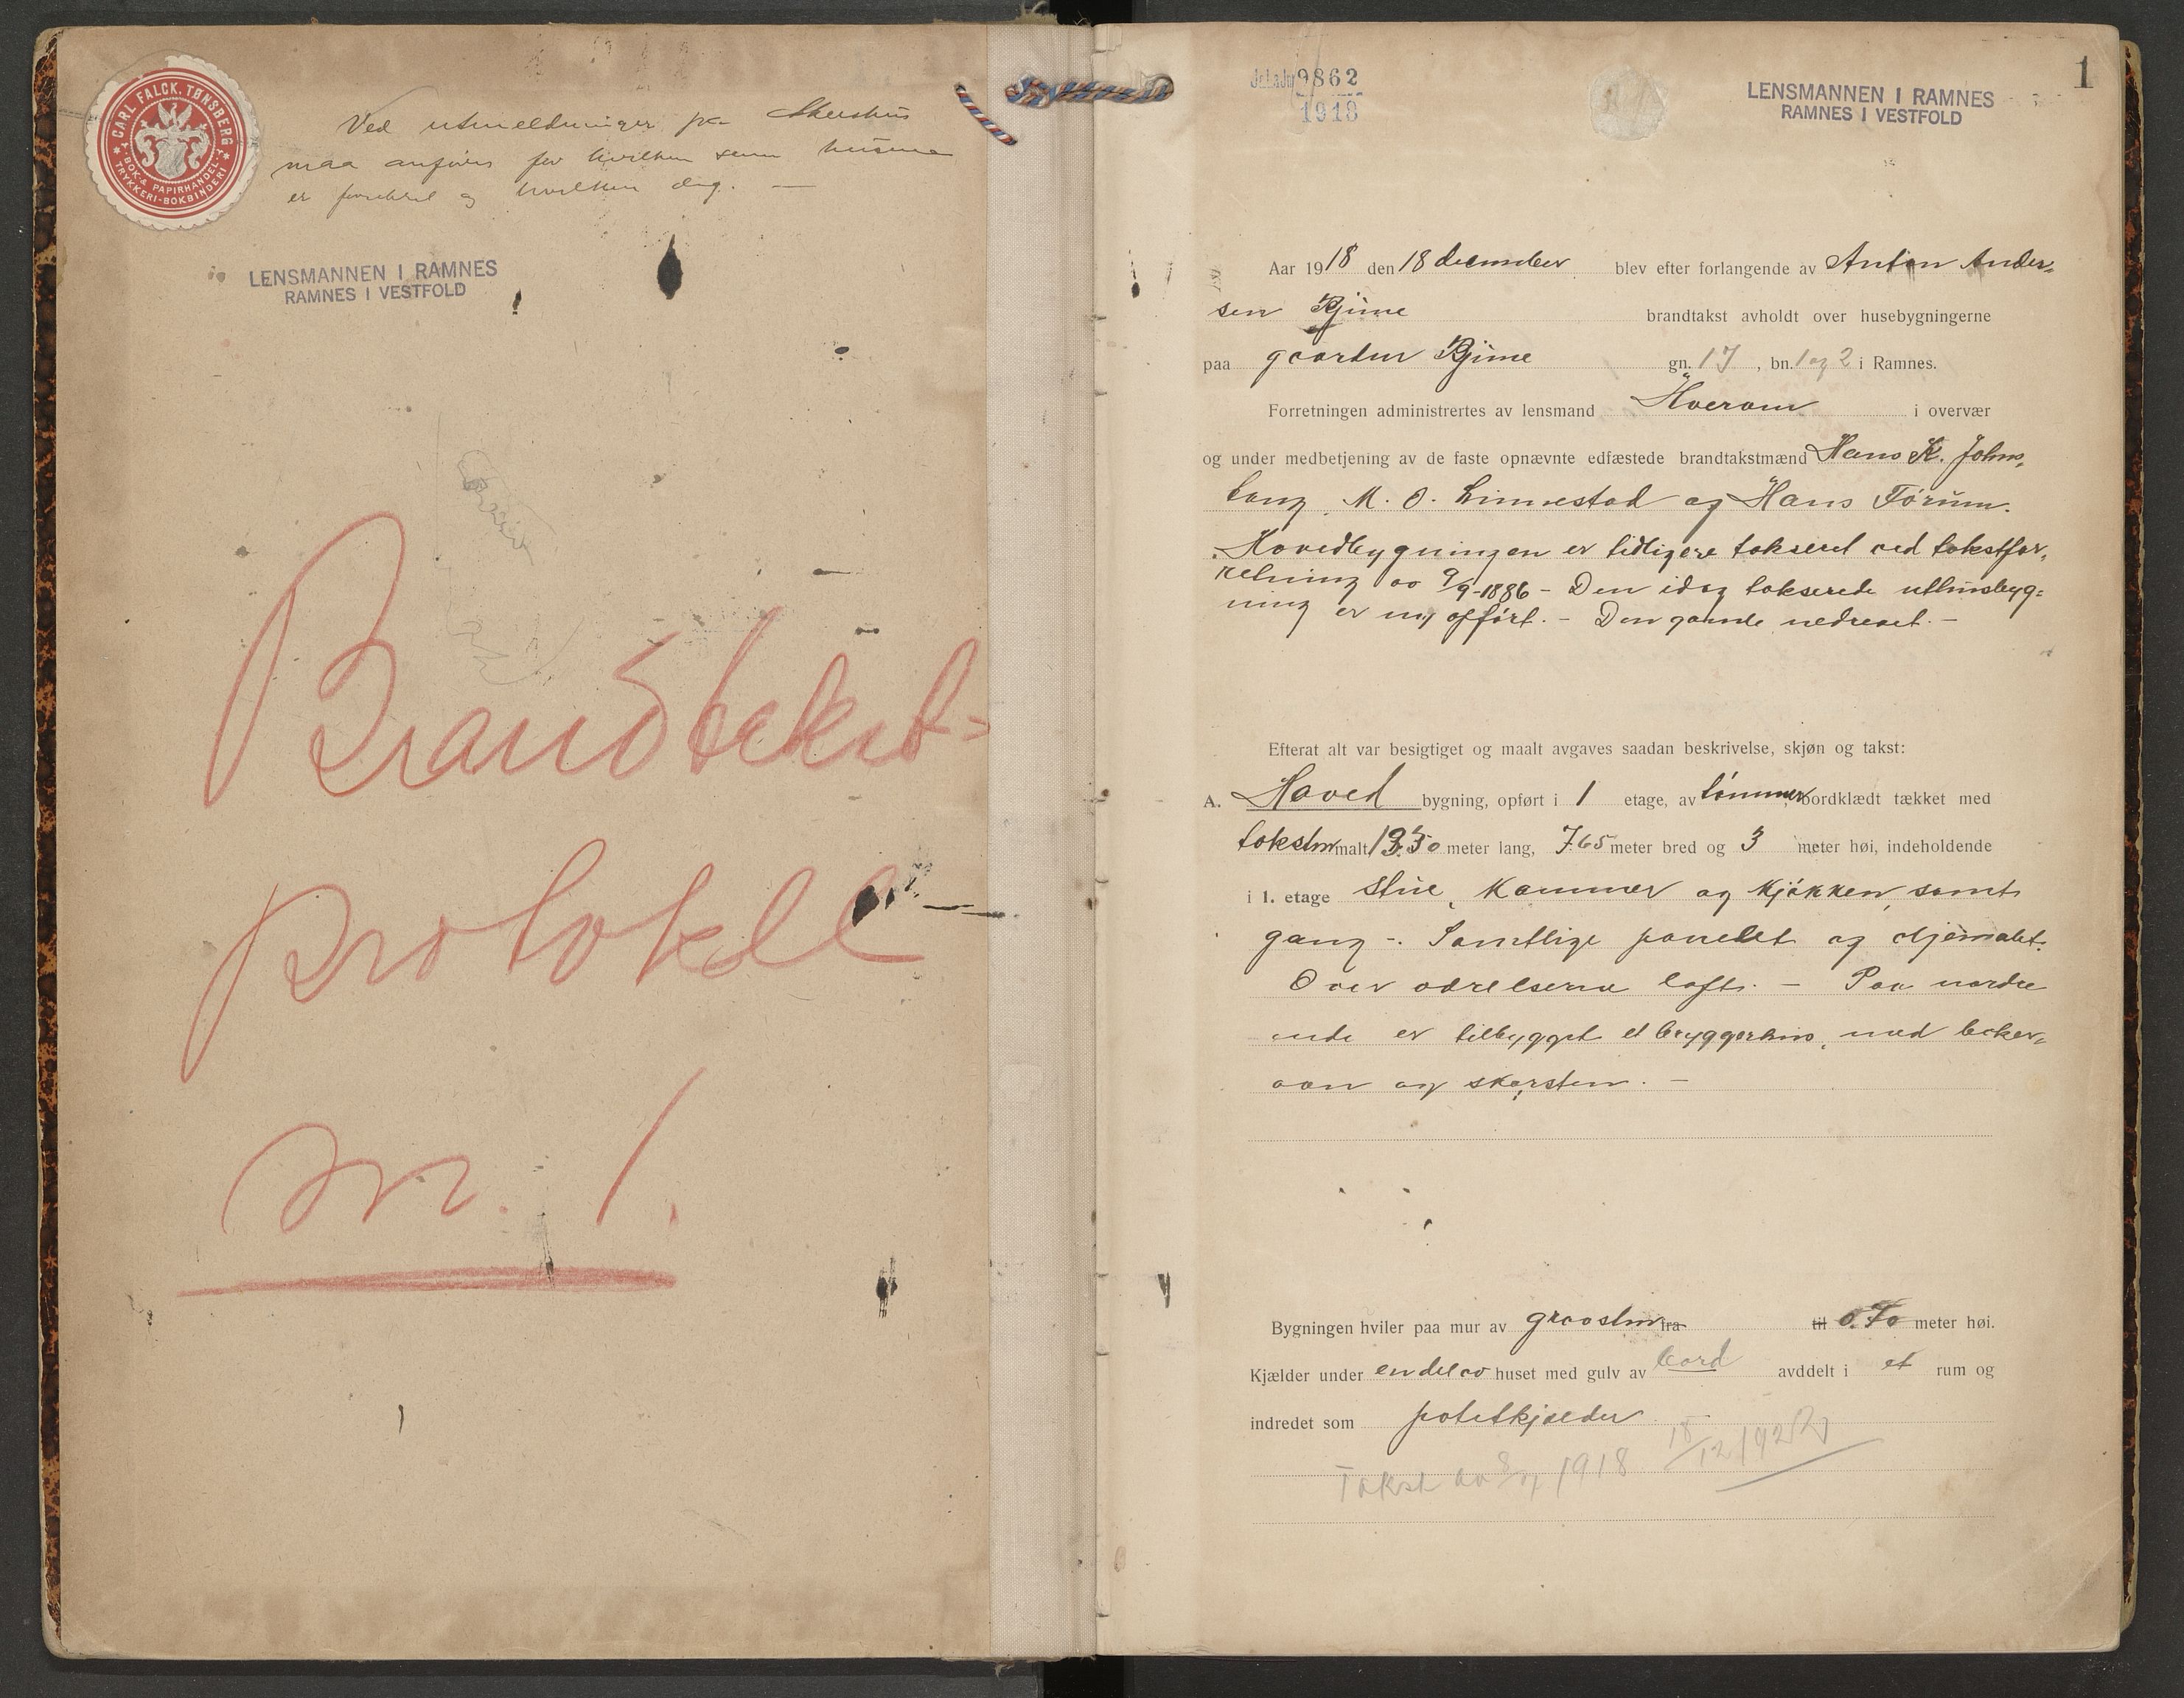 CARL FALCK. TØNSBERG
BOK- & PAPIRHANDEL
TRYKKERI-BOKBINDERI
Ved utmeldninger paa Akershus
maa anføres for hvilken sum husene
er forsikret og hvilken dag. —
LENSMANNEN I RAMNES
RAMNES I VESTFOLD
Brandtakst-
protokoll
nr. 1.
9862
1918
LENSMANNEN I RAMNES
RAMNES I VESTFOLD
1
Aar 1918 den 18 december blev efter forlangende av Anton Ander-
sen Bjune brandtakst avholdt over husebygningerne
paa gaarden Bjune gn. 17, bn. 1 og 2 i Ramnes.
Forretningen administrertes av lensmand Hværom i overvær
og under medbetjening av de faste opnævnte edfæstede brandtakstmænd Hans K. Johns-
M. O. Linnestad og Hans Førum.
Hovedbygningen er tidligere taksert ved takstfor-
retning av 9/9-1886 - Den idag takserede uthusbyg-
ning er ny opført. - Den gamle nedrevet. -
Efterat alt var besigtiget og maalt avgaves saadan beskrivelse, skjøn og takst:
A. Hoved bygning, opført i 1 etage, av tømmer bordklædt tækket med
taksten malt 13.50 meter lang, 7.65 meter bred og 3 meter høi, indeholdende
i 1. etage stue, kammer og kjøkken, samt
gang -. Samtlige panelet og oljemalet.
Over værelserne loft. - Paa nordre
ende er tilbygget et bryggerhus, med baker-
ovn og skorsten. -
Bygningen hviler paa mur av graasten fra til 0.70 meter høi.
Kjælder under en del av huset med gulv av bord avddelt i et rum og
indredet som potetkjælder
Takst av 1918 18/12 192